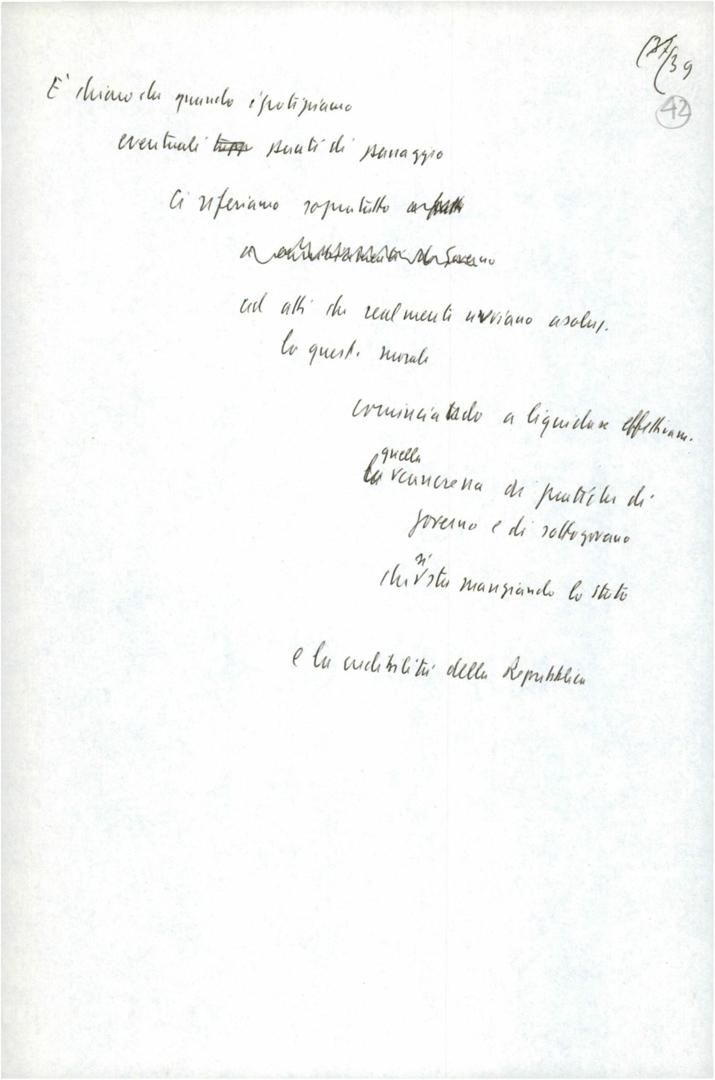 (37/39
42
E' chiaro che quando ipotizziamo
eventuali punti di passaggio
ci riferiamo sopratutto
ad atti che realmente avviano a soluz.
la quest. morale
cominciando a liquidare effettivam.
quella
la cancrena di pratiche di
governo e di sottogoverno
si
che sta mangiando lo stato
e la credibilità della Repubblica